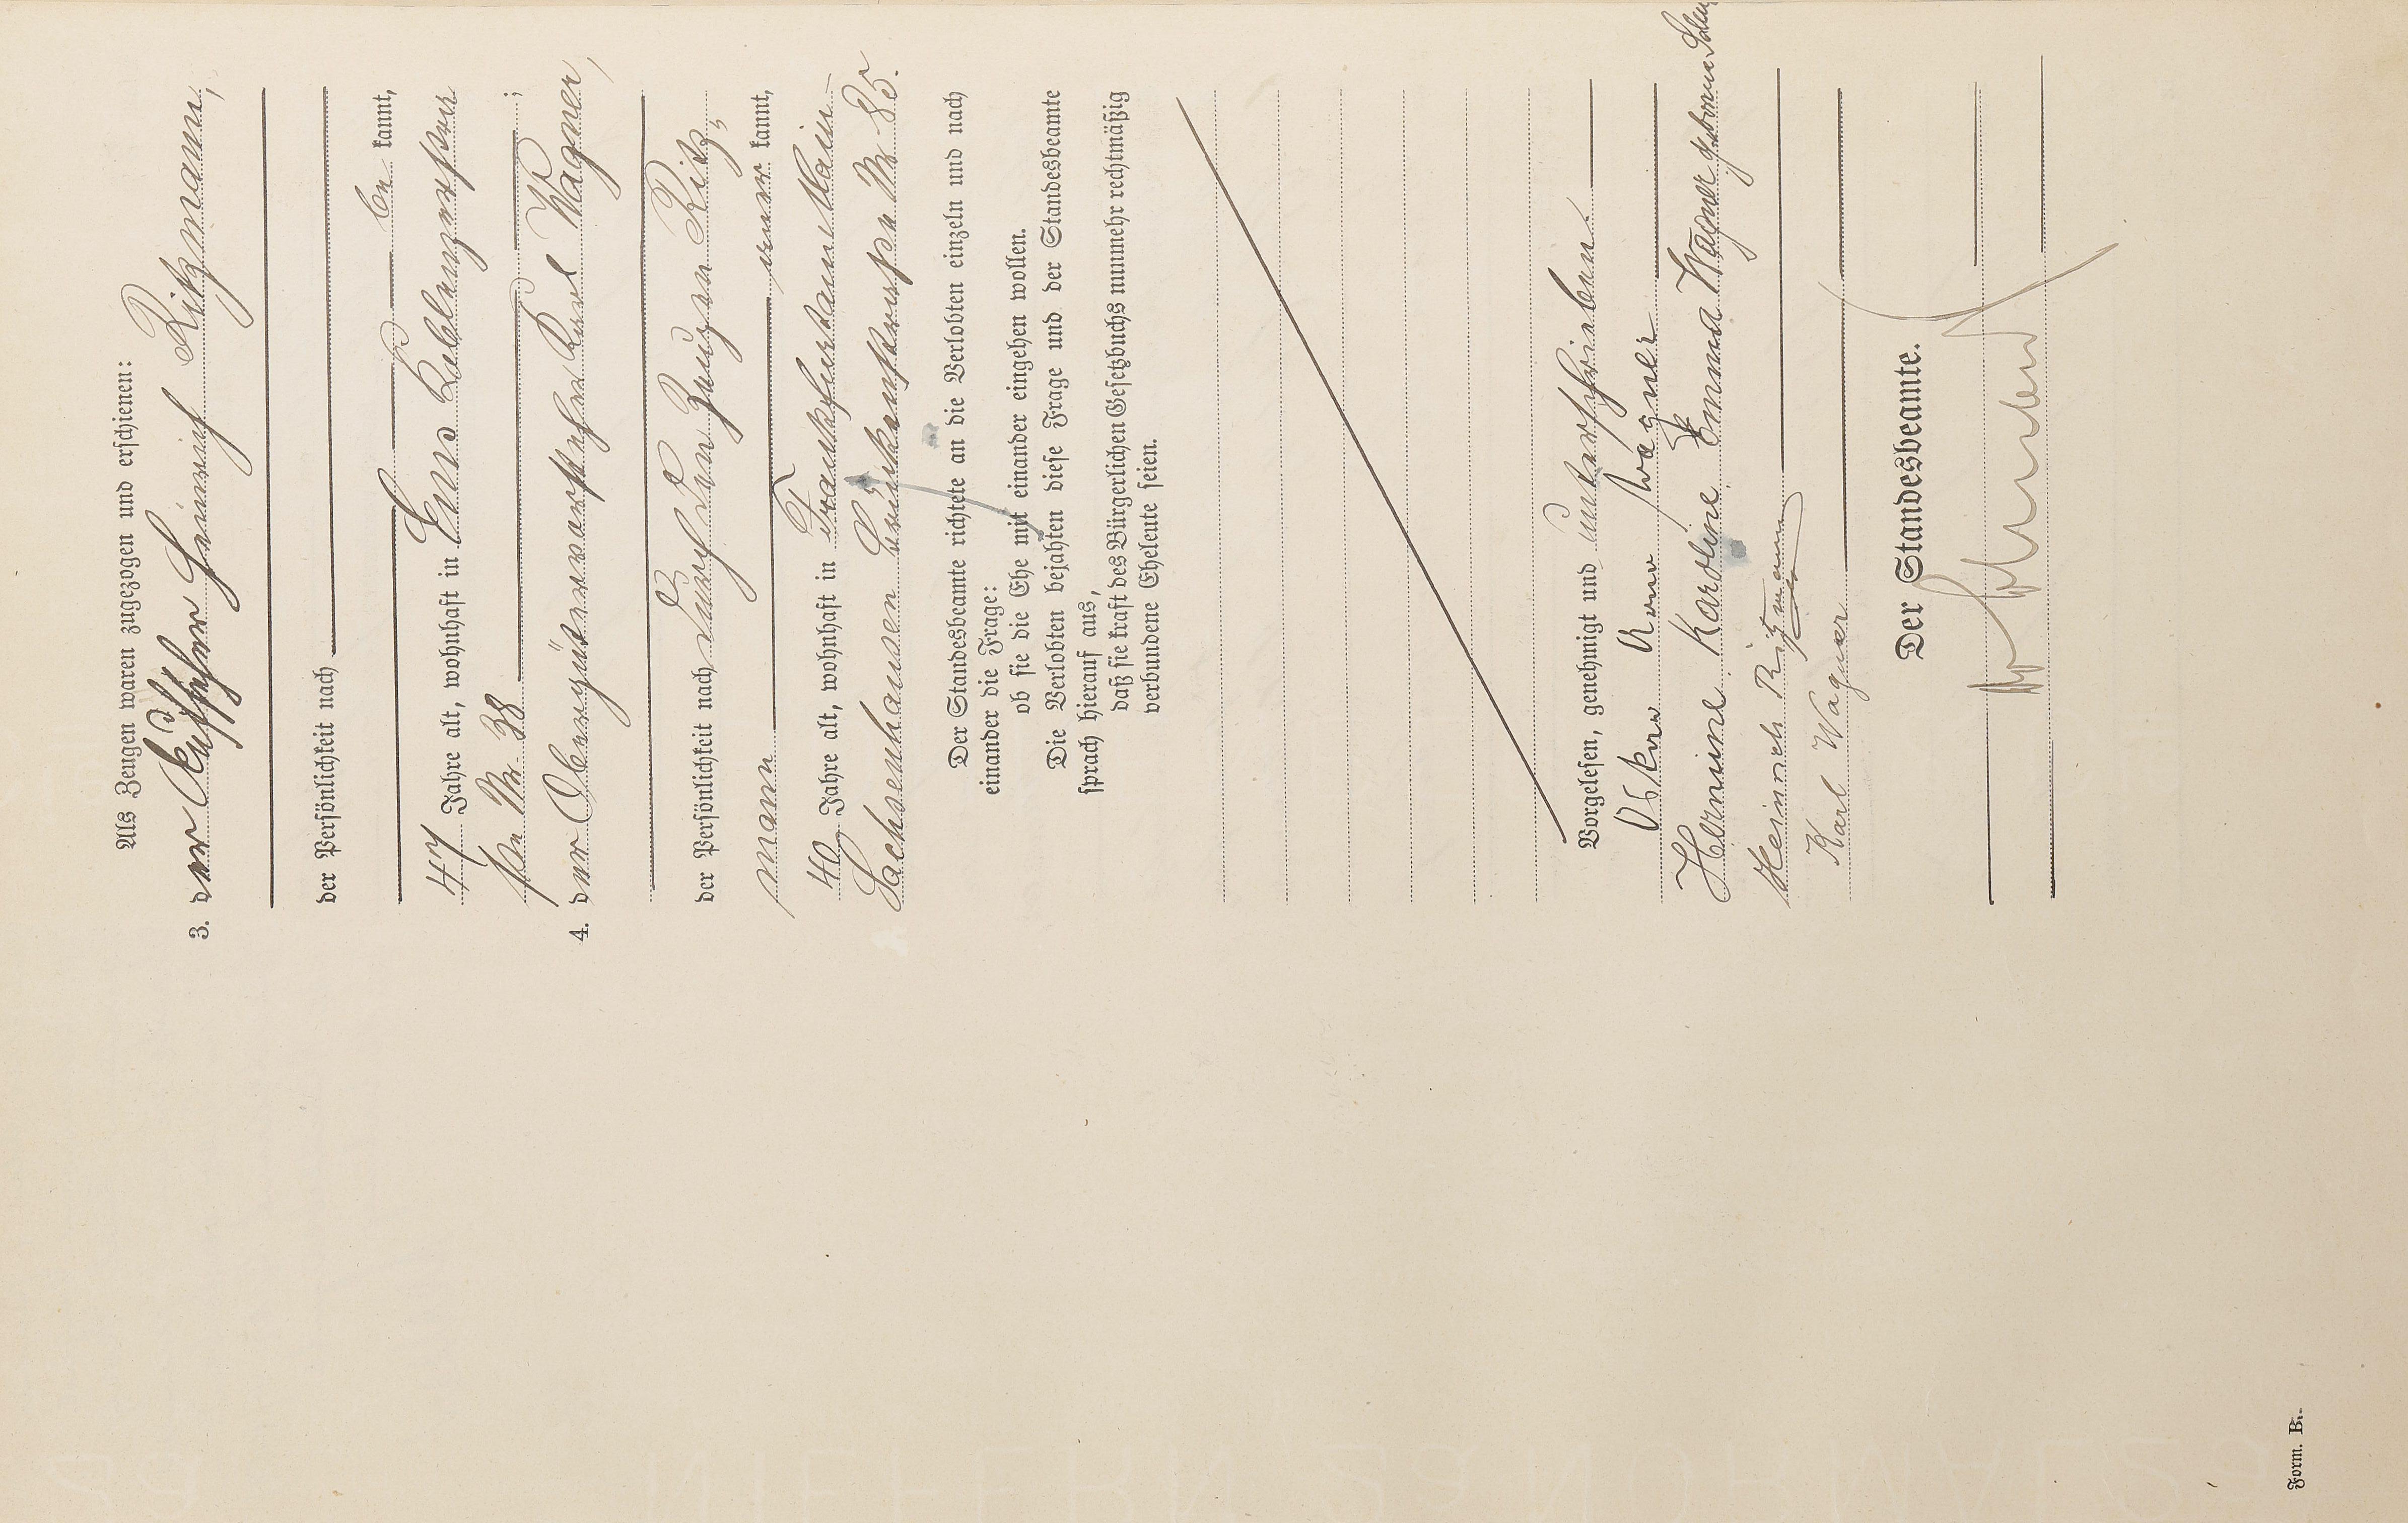 Als Zeugen waren zugezogen und erschienen:
3. der Küfer Heinrich Ritzmann,
der Persönlichkeit nach
be kannt,
47 Jahre alt, wohnhaft in Ems Coblenzerstra-
ße Nr. 38 ;
4. der Obergütervorsteher Karl Wagner,
der Persönlichkeit nach durch den Zeugen Ritz-
mann aner kannt,
40 Jahre alt, wohnhaft in Frankfurt am Main-
Sachsenhausen Brückenstraße Nr 85.
Der Standesbeamte richtete an die Verlobten einzeln und nach
einander die Frage:
ob sie die Ehe mit einander eingehen wollen.
Die Verlobten bejahten diese Frage und der Standesbeamte
sprach hierauf aus,
daß sie kraft des Bürgerlichen Gesetzbuchs nunmehr rechtmäßig
verbundene Eheleute seien.
Vorgelesen, genehmigt und unterschrieben
Oskar Wagner
Hermine Karoline Emma Wagner geborene
Heinrich Ritzmann
Karl Wagner
Der Standesbeamte.
Form. B.